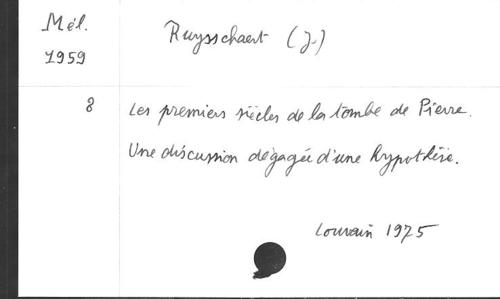 Mél. Ruysschaert (J.)
1959
8 Les premiers siècles de la tombe de Pierre.
Une discussion dégagée d'une hypothèse.
Louvain 1975